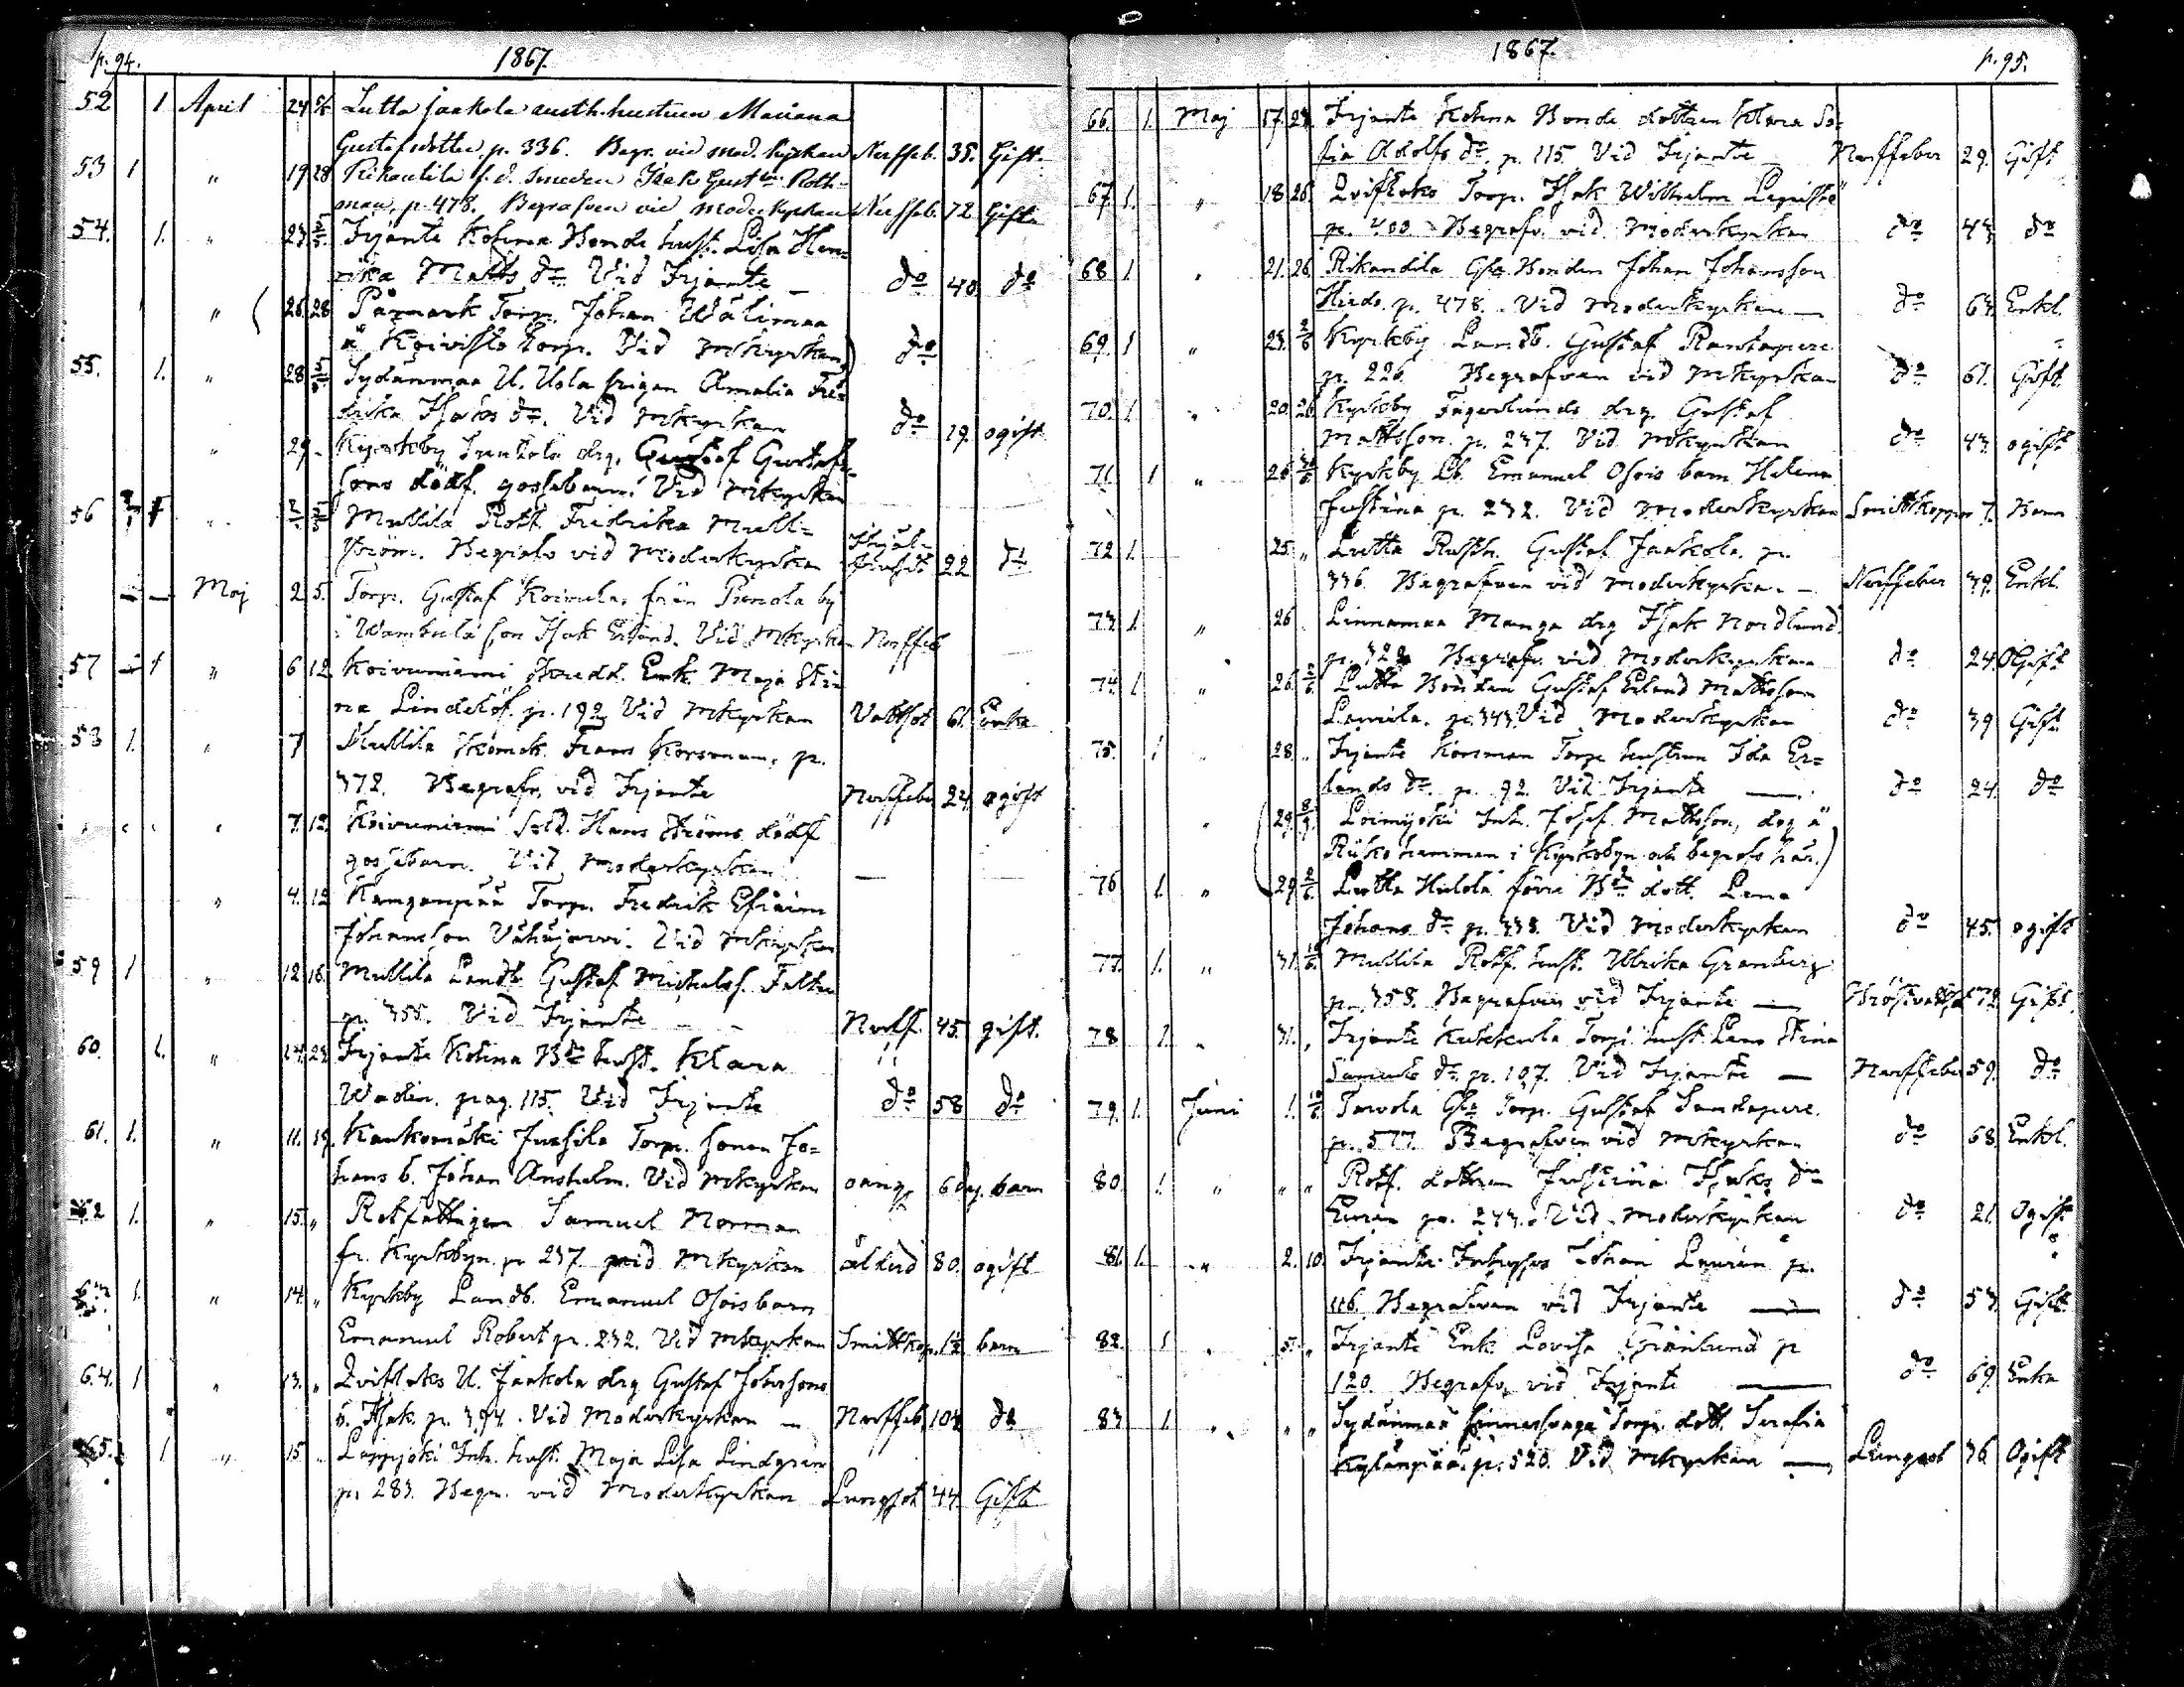 p. 94. 1867.
52 1 April 24 Lutta Jaakola austh. hustrun Mariana
Gustafsdotter p. 336. Begr. vid mod. kyrkan Nerffeb. 35. Gift.
53 1 " 19 28 Rikantila f. d. smeden Isak Gust. Roth-
man, p. 478. Begrafven vid moderkyrkan Nerffeb. 72 Gift.
54. 1. " 23 Irjante Kohma Bonde hust. Lisa Hen-
rika Matts dr. Vid Irjante do 40. do
" 26 28 Påmark Torp. Johan Wälimaa
å Koivisto torp. Vid Mkyrkan) do
55. 1. " 28 Sydänmaa U. Usla pigan Amalia Fre-
drika Isaks dr. Vid Mkyrkan do 19. ogift
" 29 Kyrkby drg. Gustaf Gustafs-
sons dödf. gossebarn. Vid Mkyrkan
56 Mullila Roth. Fridrika Mull-
ström. Begrafv. vid Moderkyrkan 22 do
Maj 2 5. Torp. Gustaf Koivula, från by
i Wambula son Isak Erland. Vid Mkyrkan Nerffeb
57 1 " 6 12 Koivuniemi Enk. Maja Sti-
na Lindelöf. p. 192 Vid Mkyrkan Vattsot 61. Enka
58 1. " 7 Mullila Frans Korsman, p.
372. Begrafv. vid Irjante Nerffeber 24. ogift
7. 12. Koivuniemi Sold. Hans Ströms dödf
gossebarn. Vid Moderkyrkan —
" 4. 12 Kangenpää Torp. Fredrik Efraim
Johansson Vähäjärvi. Vid Mkyrkan
59 1 " 12 16. Mullila Landb. Gustaf Michelss. Falten
p. 355. Vid Irjante Nerff. 45. gift.
60. 1. " 14. 23. Irjante Kohma Bde hust. Klara
Wadén. pag. 115. Vid Irjante do 58 do
61. 1. " 11. 19. Kankomäki Jussila Torp. sonen Jo-
hans b. Johan Anshelm. Vid Mkyrkan oang. 6 dag. barn
62 1. " 15. " Rotfattigen Samuel Norman
fr. Kyrkobyn. p 237. vid Mkyrkan ålderd 80. ogift
1. " 14. " Kyrkby Landb. Emanuel Osois barn
Emanuel Robert p. 232. Vid Mkyrkan Smittkop. 1½ barn
64. 1 " 13. " Qviflaks U. Jaakola drg Gustaf Johanssons
b. Isak. p. 394. Vid Moderkyrkan — Nerffeb. do
65. 1 " 15 Lappijoki Inh. hust. Maja Lisa Lindgren
p. 283. Begr. vid Moderkyrkan Lungsot 44. Gift
1867. p. 95.
66. 1. Maj 17. 23. Irjante Kohma Bonde dottren Klara So-
fia Adolfs dr. p. 115. Vid Irjante — Nerffeber 29. Gift
67. 1. " 18 26. Qviflaks Torp. Isak Wilhelm Lepistö
p. 400. Begrafv. vid Moderkyrkan do 43 do
68 1 " 21. 26. Rikandila Gla Bonden Johan Johansson
Hirdo. p. 478. Vid Moderkyrkan — do 63. Enkl.
69. 1 " 23. 2/6 Kyrkby Landb. Gustaf Rantapere
p. 226. Begrafven vid Mkyrkan do 61. Gift.
70. 1. " 20. 26. Kyrkby Fagerlunds drg. Gustaf
Mattsson. p. 237. Vid Mkyrkan do 43. ogift
71. 1 " 26 Kyrkby Lb. Emanuel Osois barn Helena
Justina p. 232. Vid Moderkyrkan Smittkoppor 7. Barn
72. 1. 25 " Lutta Rusth. Gustaf Jaakola, p.
336. Begrafven vid Moderkyrkan — Nerffeber 39. Enkl.
73. 1. " 26 Linnamaa Manga drg Isak Nordlund.
p. 322 Begrafv. vid Moderkyrkan do 24. Ogift
74. 1. " 26. 2/6 Lutta Bonden Gustaf Erland Mattsson
Lamila. p. 343 Vid Moderkyrkan do 39 Gift.
75. 1 " 28. " Irjante Korsman Torp. hustrun Ida Er-
lands dr. p. 92. Vid Irjante — do 24. do
" 29. Loimijoki Inh. Josef Mattsson, dog å
hemman i Kyrkobyn och begrofs här.)
76 1. " 29. 2/6 Lutta Huldla förre Bde dott. Lena
Johans dr. p. 338. Vid Moderkyrkan do 45. ogift
77. 1. " 31. Mullila Rotf. hust. Ulrika Granberg
p. 358. Begrafven vid Irjante — Gift.
78 1. " 31. " Irjante Kuttkula Torp. hust. Lena Stina
Samuels dr. p. 107. Vid Irjante — Nerffeber 59. do
79. 1. Juni 1. Torvola Gla Torp. Gustaf Sandapere.
p. 577. Begrafven vid Mkyrkan do 68. Enkl.
80. 1. " " " Rotf. dottren Justina Isaks dr
Eurén p. 233. Vid Moderkyrkan do 21. Ogift
81. 1. " 2. 10. Irjante Inhyses Johan Laurén p.
116. Begrafven vid Irjante — do 53. Gift.
82. 1 " 5. " Irjante Enk. Lovisa Grönlund p
120. Begrafv. vid Irjante — do 69. Enka
83 1. " " " Sydänmaa Torp. dott. Serafia
Kylänpää. p. 520. Vid Mkyrkan — Lungsot 36. Ogift